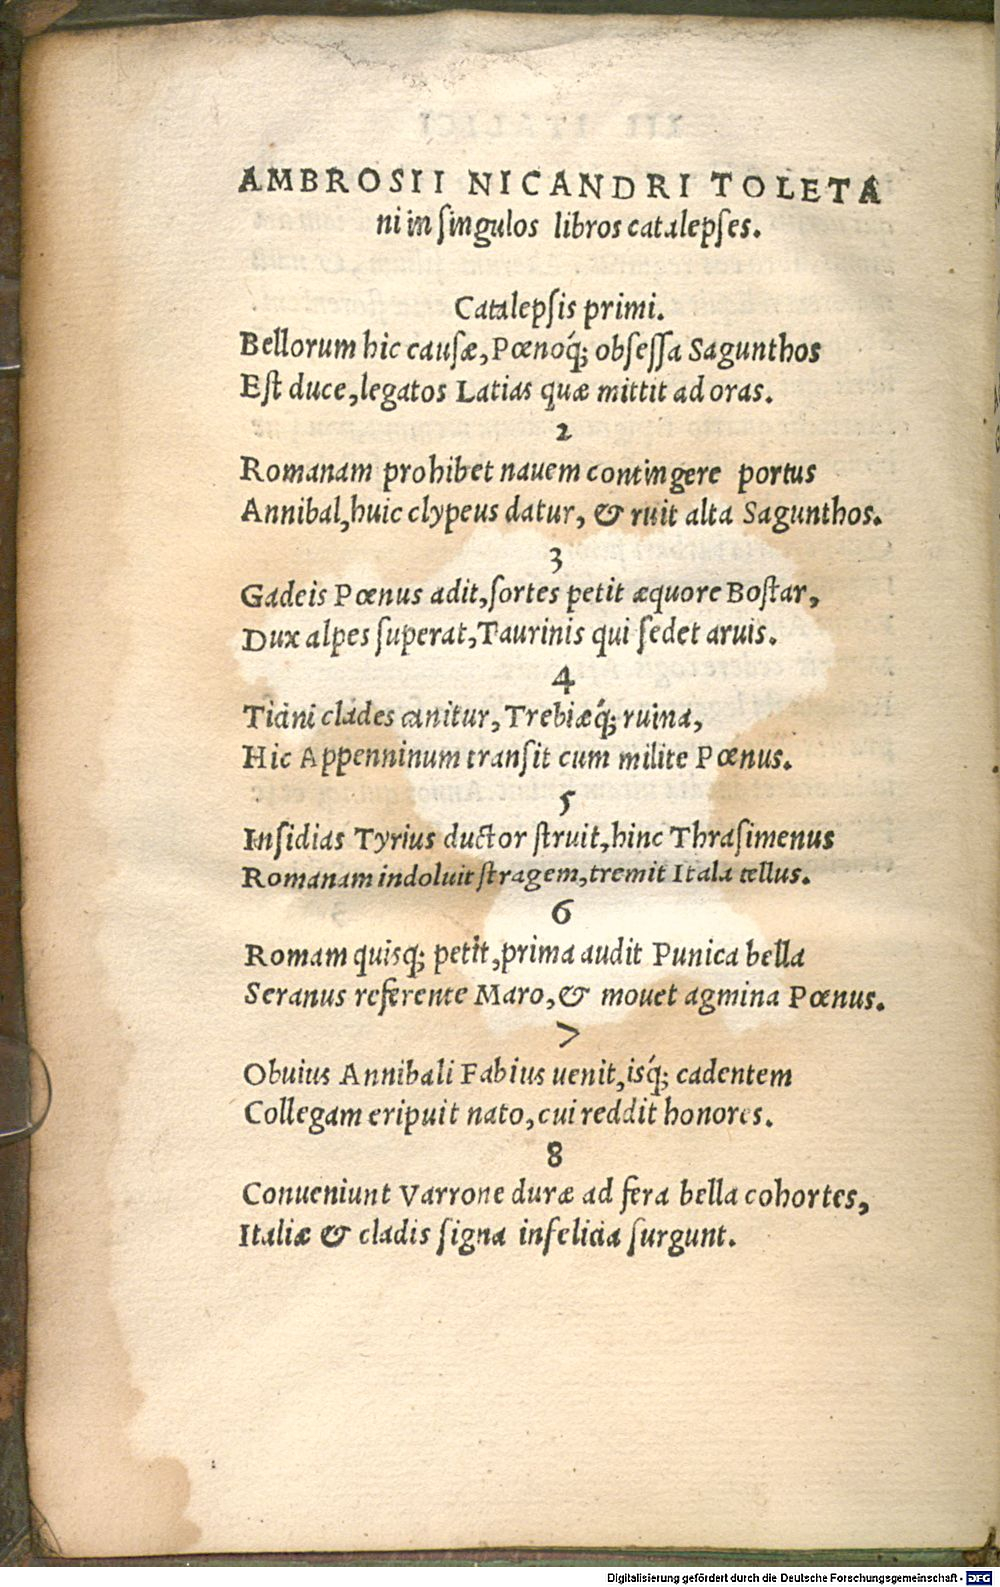 AMBROSII NICANDRI TOLETA
ni in ſingulos libros catalepſes.
Catalepſis primi.
Bellorum hic cauſæ, Pœnoq́; obſeſſa Sagunthos
Eſt duce, legatos Latias quæ mittit ad oras.
2
Romanam prohibet nauem contingere portus
Annibal, huic clypeus datur, & ruit alta Sagunthos.
3
Gadeis Pœnus adit, ſortes petit æquore Boſtar,
Dux alpes ſuperat, Taurinis qui ſedet aruis.
4
Ticini clades canitur, Trebiæq́; ruina,
Hic Appenninum tranſit cum milite Pœnus.
5
Inſidias Tyrius ductor ſtruit, hinc Thraſimenus
Romanam indoluit ſtragem, tremit Itala tellus.
6
Romam quisq; petit, prima audit Punica bella
Seranus referente Maro, & mouet agmina Pœnus.
7
Obuius Annibali Fabius uenit, isq́; cadentem
Collegam eripuit nato, cui reddit honores.
8
Conueniunt Varrone duræ ad fera bella cohortes,
Italiæ & cladis ſigna infelicia ſurgunt.
Digitalisierung gefördert durch die Deutsche Forschungsgemeinschaft - DFG